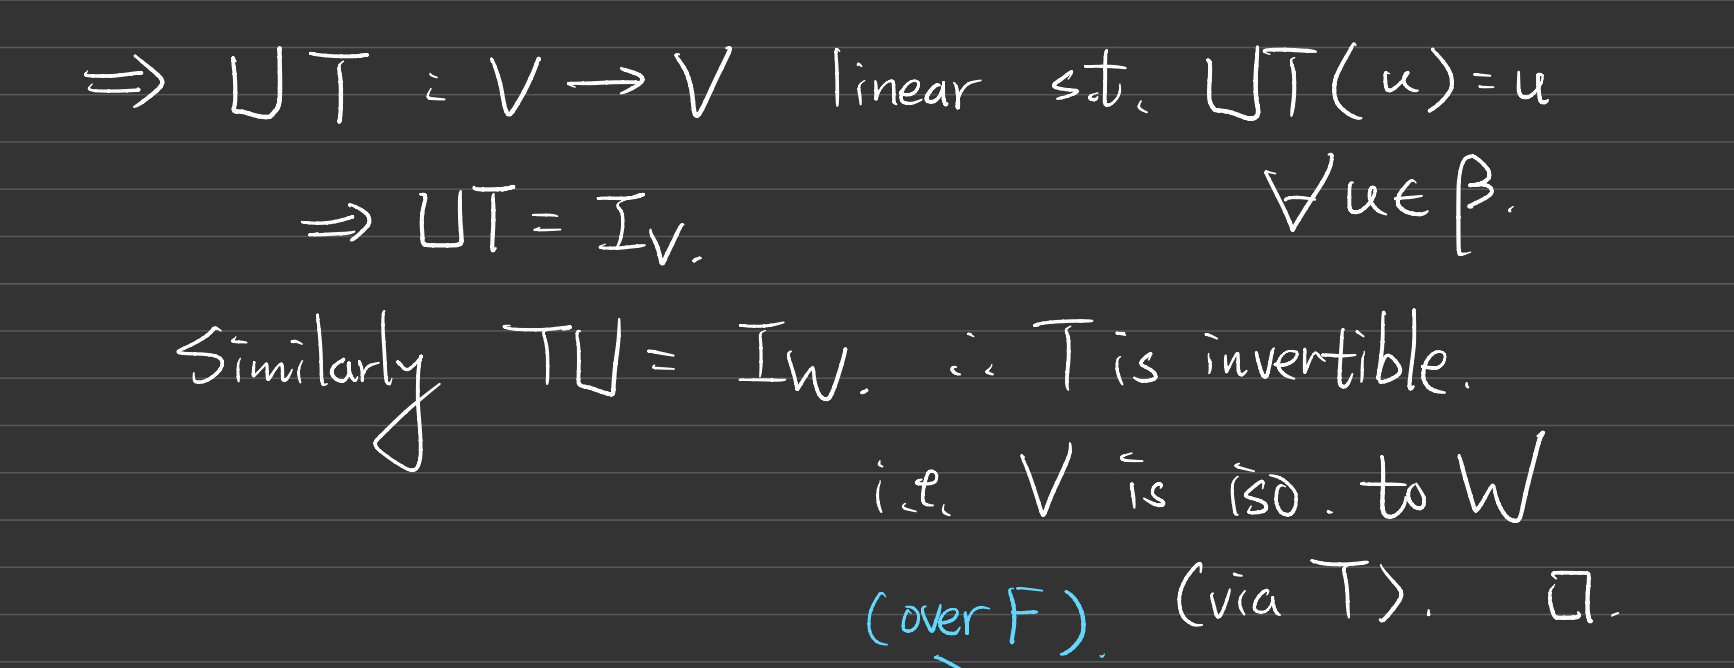 ⇒ UT : V → V linear s.t. UT(u) = u
∀u∈β.
⇒ UT = I_V.
Similarly TU = I_W. ∴ T is invertible.
i.e. V is iso. to W
(via T). □.
(over F).